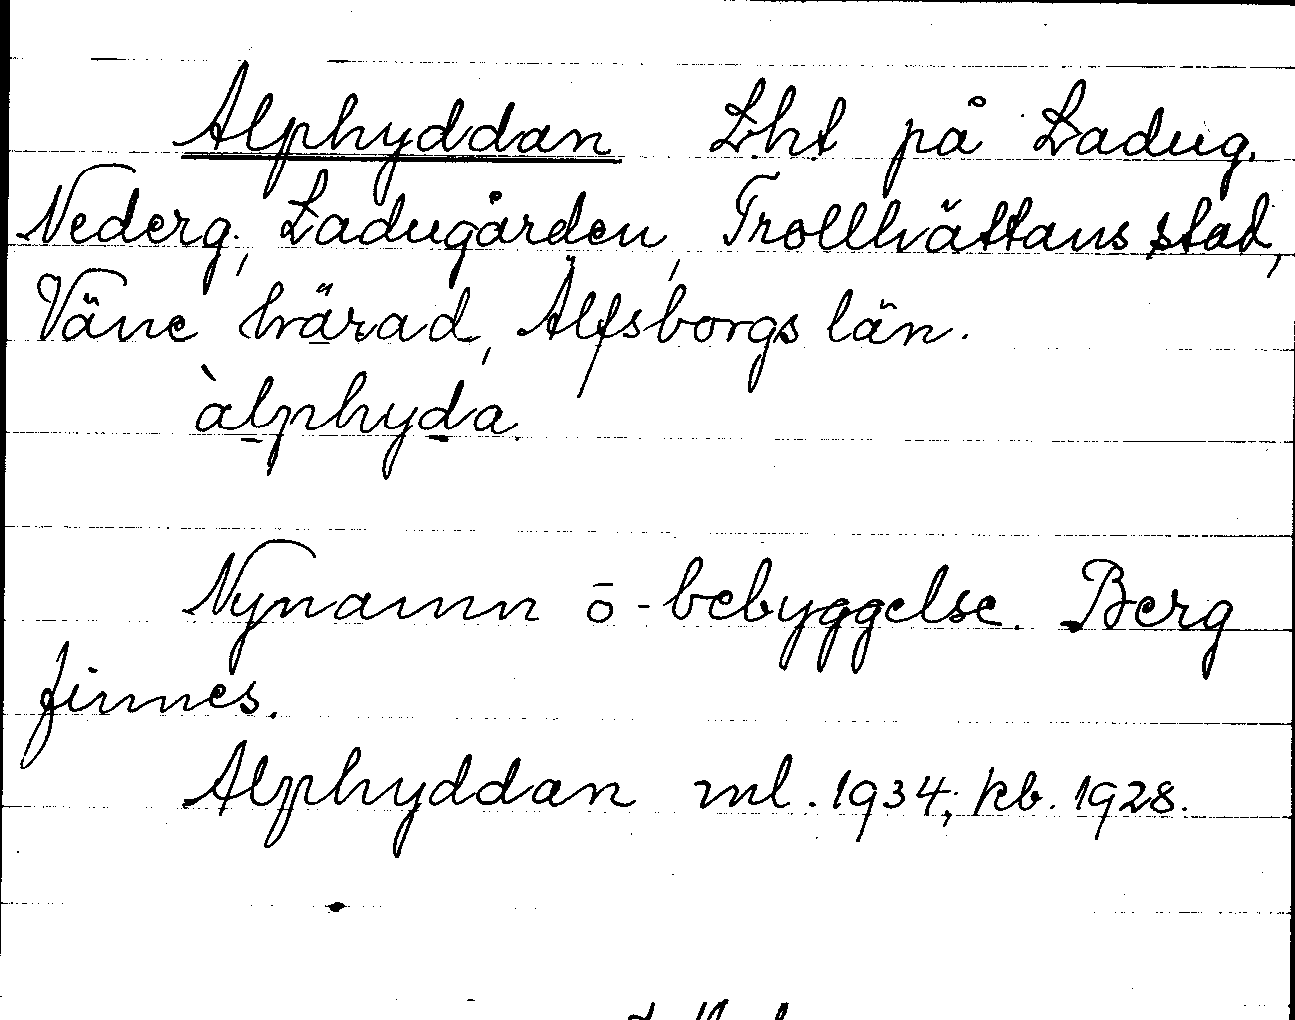 Alphyddan Lht på Ladug.
Nederg., Ladugården, Trollhättans stad,
Väne härad, Älfsborgs län.
àlphyda.
Nynamn o -bebyggelse. Berg
finnes.
Alphyddan ml. 1934; kb. 1928.